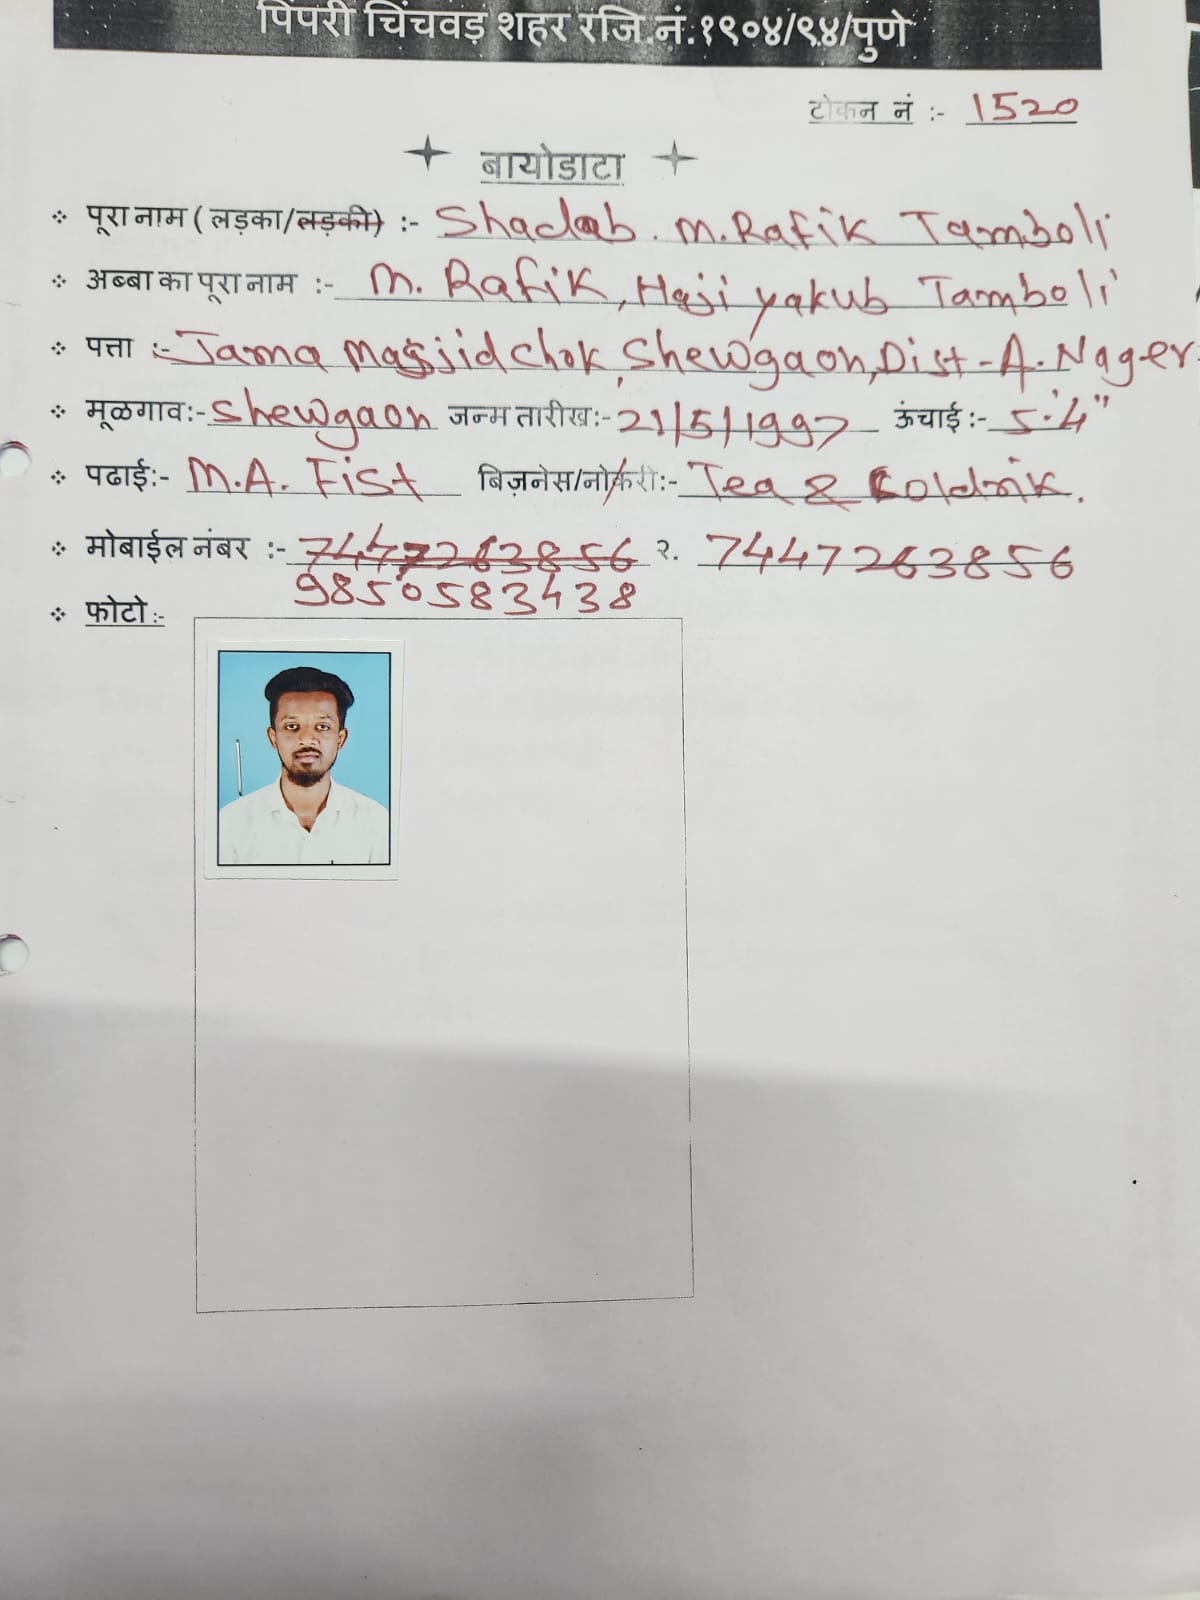 पिंपरी चिंचवड़ शहर रजि.नं.१९०४/९४/पुणे
टोकन नं :- 1520
बायोडाटा
पूरा नाम ( लड़का/लड़की) :- Shadab. M. Rafik Tamboli
अब्बा का पूरा नाम :- M. Rafik, Haji yakub Tamboli
पत्ता :- Jama Masjid Chok, Shewgaon, Dist-A.Nager.
मूळगाव:- Shewgaon जन्म तारीख:- 21/5/1997 ऊंचाई:- 5'.4"
पढाई:- M.A. Fist बिज़नेस/नोकरी:- Tea & Coldrik.
मोबाईल नंबर :- 7447263856 २. 7447263856
9850583438
फोटो :-